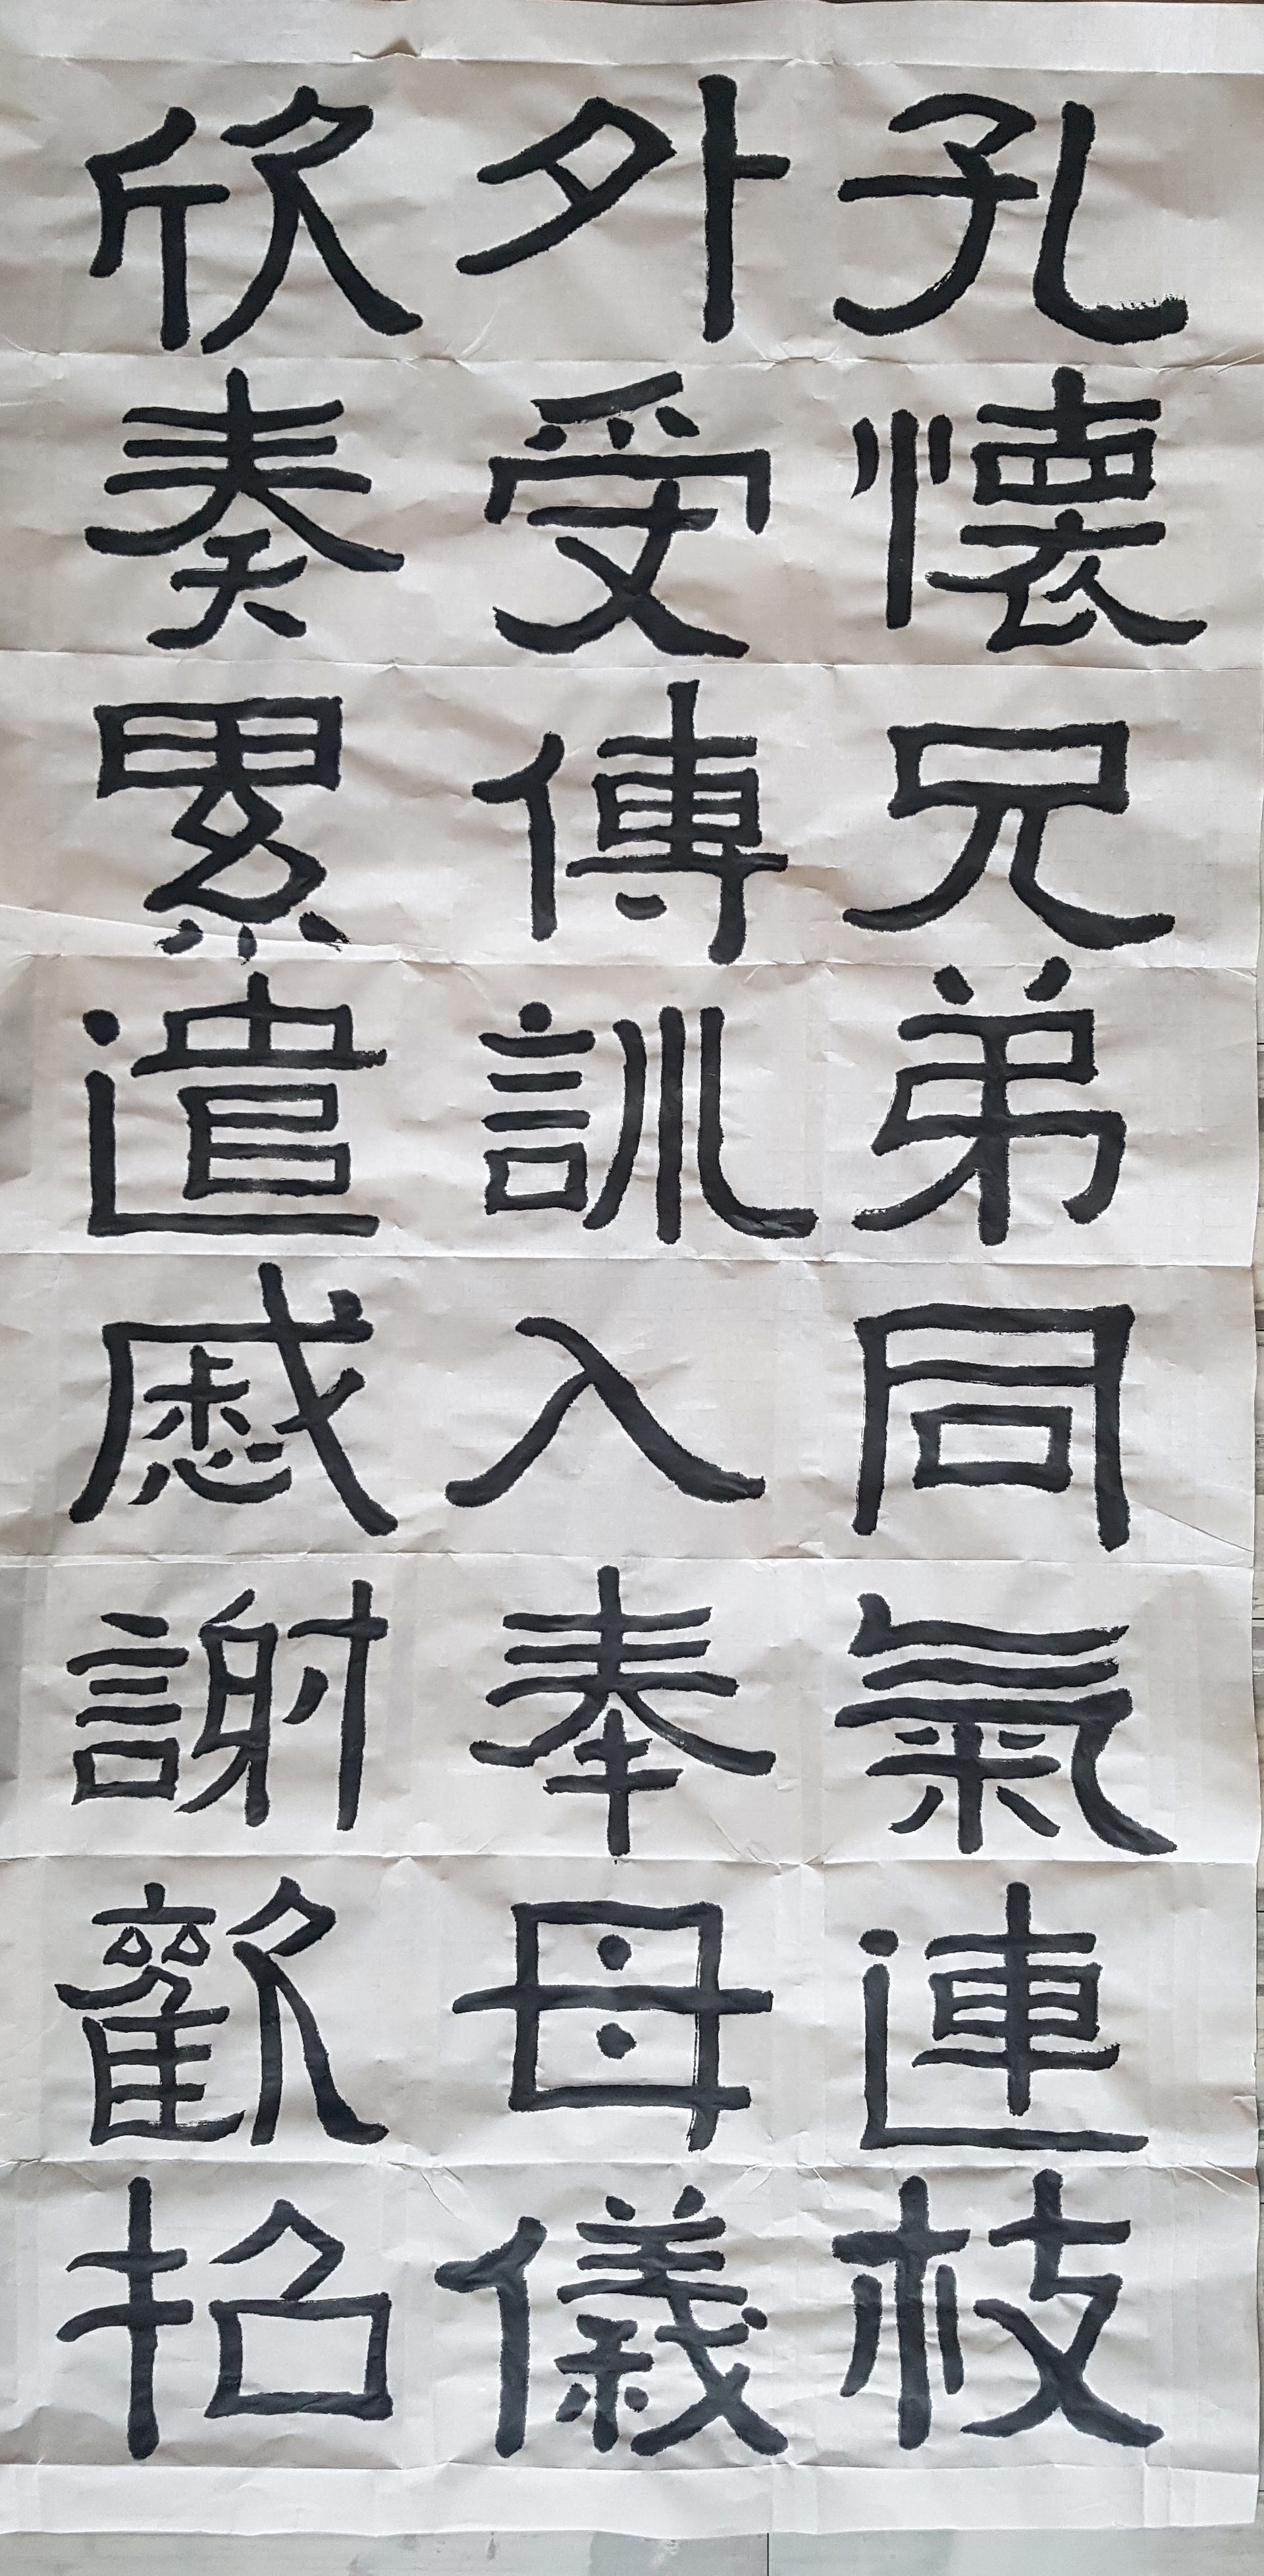 孔懷兄弟同氣連枝
外受傅訓入奉母儀
欣奏累遣慼謝歡招